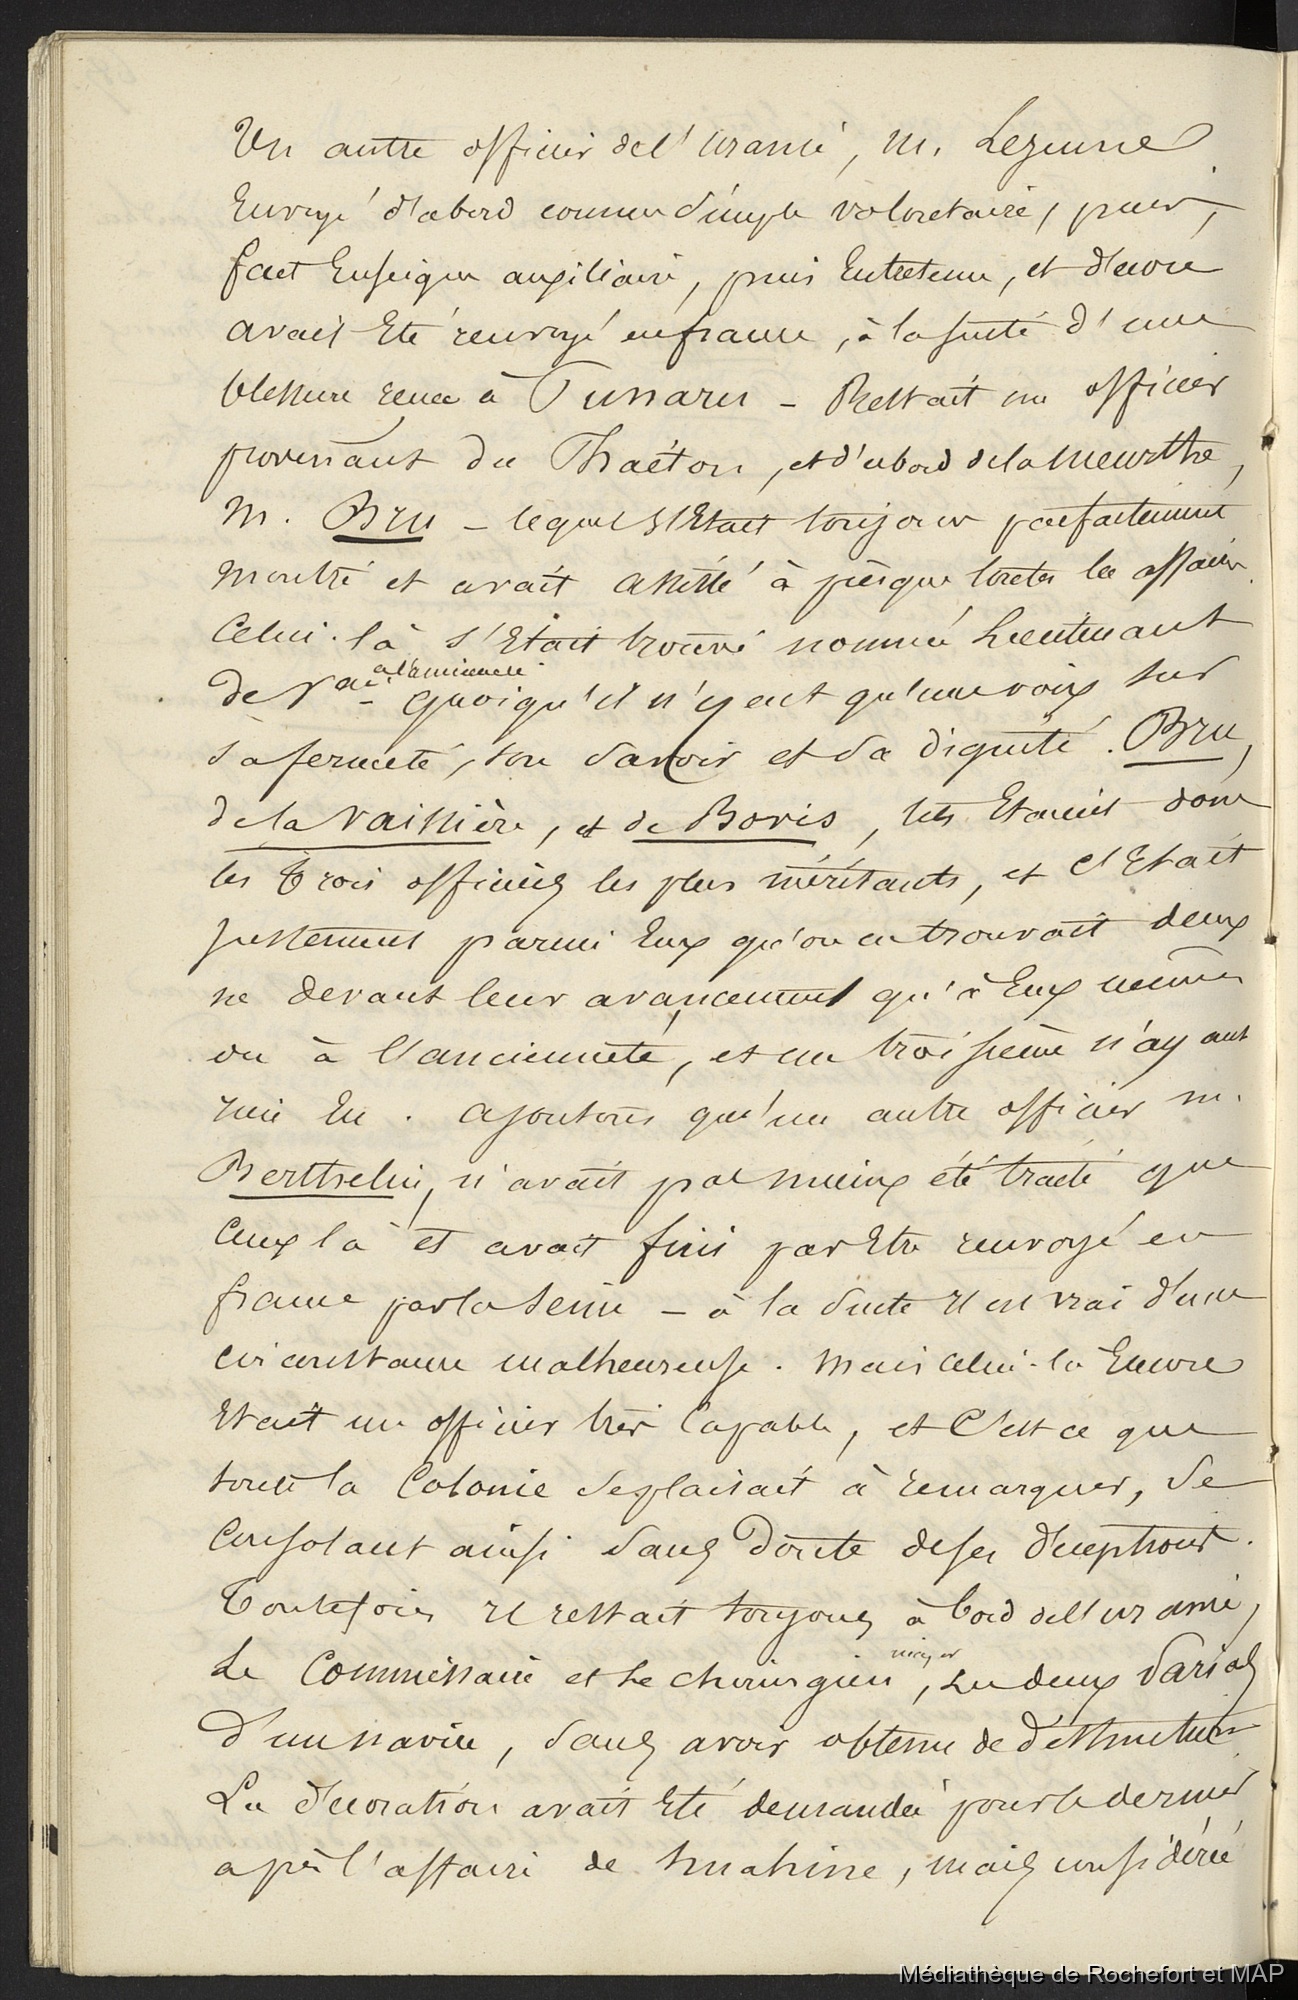 Un autre officier de l'uranie, M. Lejeune
Envoyé d'abord comme simple volontaire, puis,
fait Enseigne auxiliaire, puis Entretenu, et décoré
avait Eté renvoyé en france, à la suite d'une
blessure reçue à - Restait un officier
provenant du Phaéton, et d'abord de la Meurthe,
M. Bru - lequel s'Etait toujours parfaitement
montré et avait assisté à presque toutes les affaires.
Celui-là s'Etait trouvé nommé Lieutenant
de Vau à l'ancienneté
- quoiqu'il n'y eut qu'une voix sur
sa fermeté, son savoir et sa dignité. Bru,
de la Vaissière, et de Bovis, tels Etaient donc
les trois officiers les plus méritants, et c'Etait
justement parmi Eux qu'on en trouvait deux
ne devant leur avancement qu'à Eux mêmes
ou à l'ancienneté, et un troisième n'ayant
rien Eu. Ajoutons qu'un autre officier M.
Berthelin, n'avait pas mieux été traité que
Ceux là et avait fini par Etre renvoyé en
france par la Seine - à la suite Il est vrai d'une
circonstance malheureuse. Mais celui-là Encore
Etait un officier très Capable, et C'est ce que
toute la Colonie se plaisait à remarquer, Se
Consolant ainsi sans doute de ses déceptions.
Toutefois Il restait toujours à bord de l'uranie,
Le Commissaire et Le chirurgien major, Les deux parias
d'un navire, sans avoir obtenu de distinction
La décoration avait Eté demandée pour le dernier
après l'affaire de Mahine, mais considérée